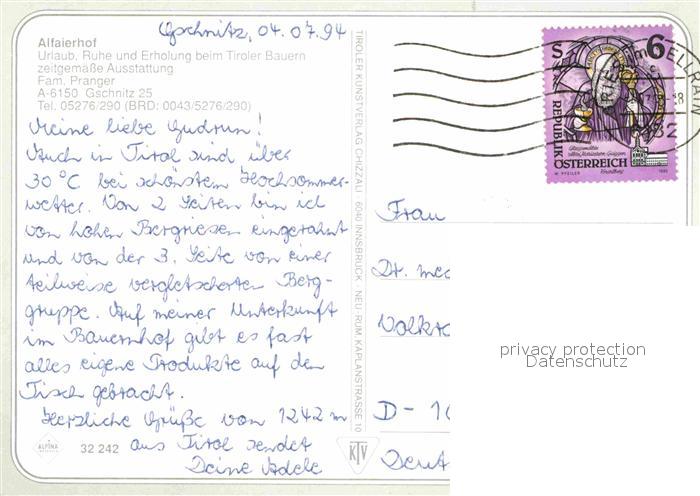 Gschnitz, 04.07.94
Alfaierhof
Urlaub, Ruhe und Erholung beim Tiroler Bauern
zeitgemäße Ausstattung
Fam. Pranger
A-6150 Gschnitz 25
Tel. 05276/290 (BRD: 0043/5276/290)
Meine liebe Gudrun!
Auch in Tirol sind über
30°C bei schönstem Hochsommer-
wetter. Von 2 Seiten bin ich
von hohen Bergriesen eingerahmt
und von der 3. Seite von einer
teilweise vergletscherten Berg-
gruppe. Auf meiner Unterkunft
im Bauernhof gibt es fast
alles eigene Produkte auf den
Tisch gebracht.
Herzliche Grüße von 1242 m
aus Tirol sendet
Deine Adele
ALPINA
32 242
TIROLER KUNSTVERLAG CHIZZALI · 6040 INNSBRUCK - NEU-RUM, KAPLANSTRASSE 10
KTV
S 6
REPUBLIK
ÖSTERREICH
W. PFEILER
Frau
Dr. med
Volkr
D-
Deut
privacy protection
Datenschutz